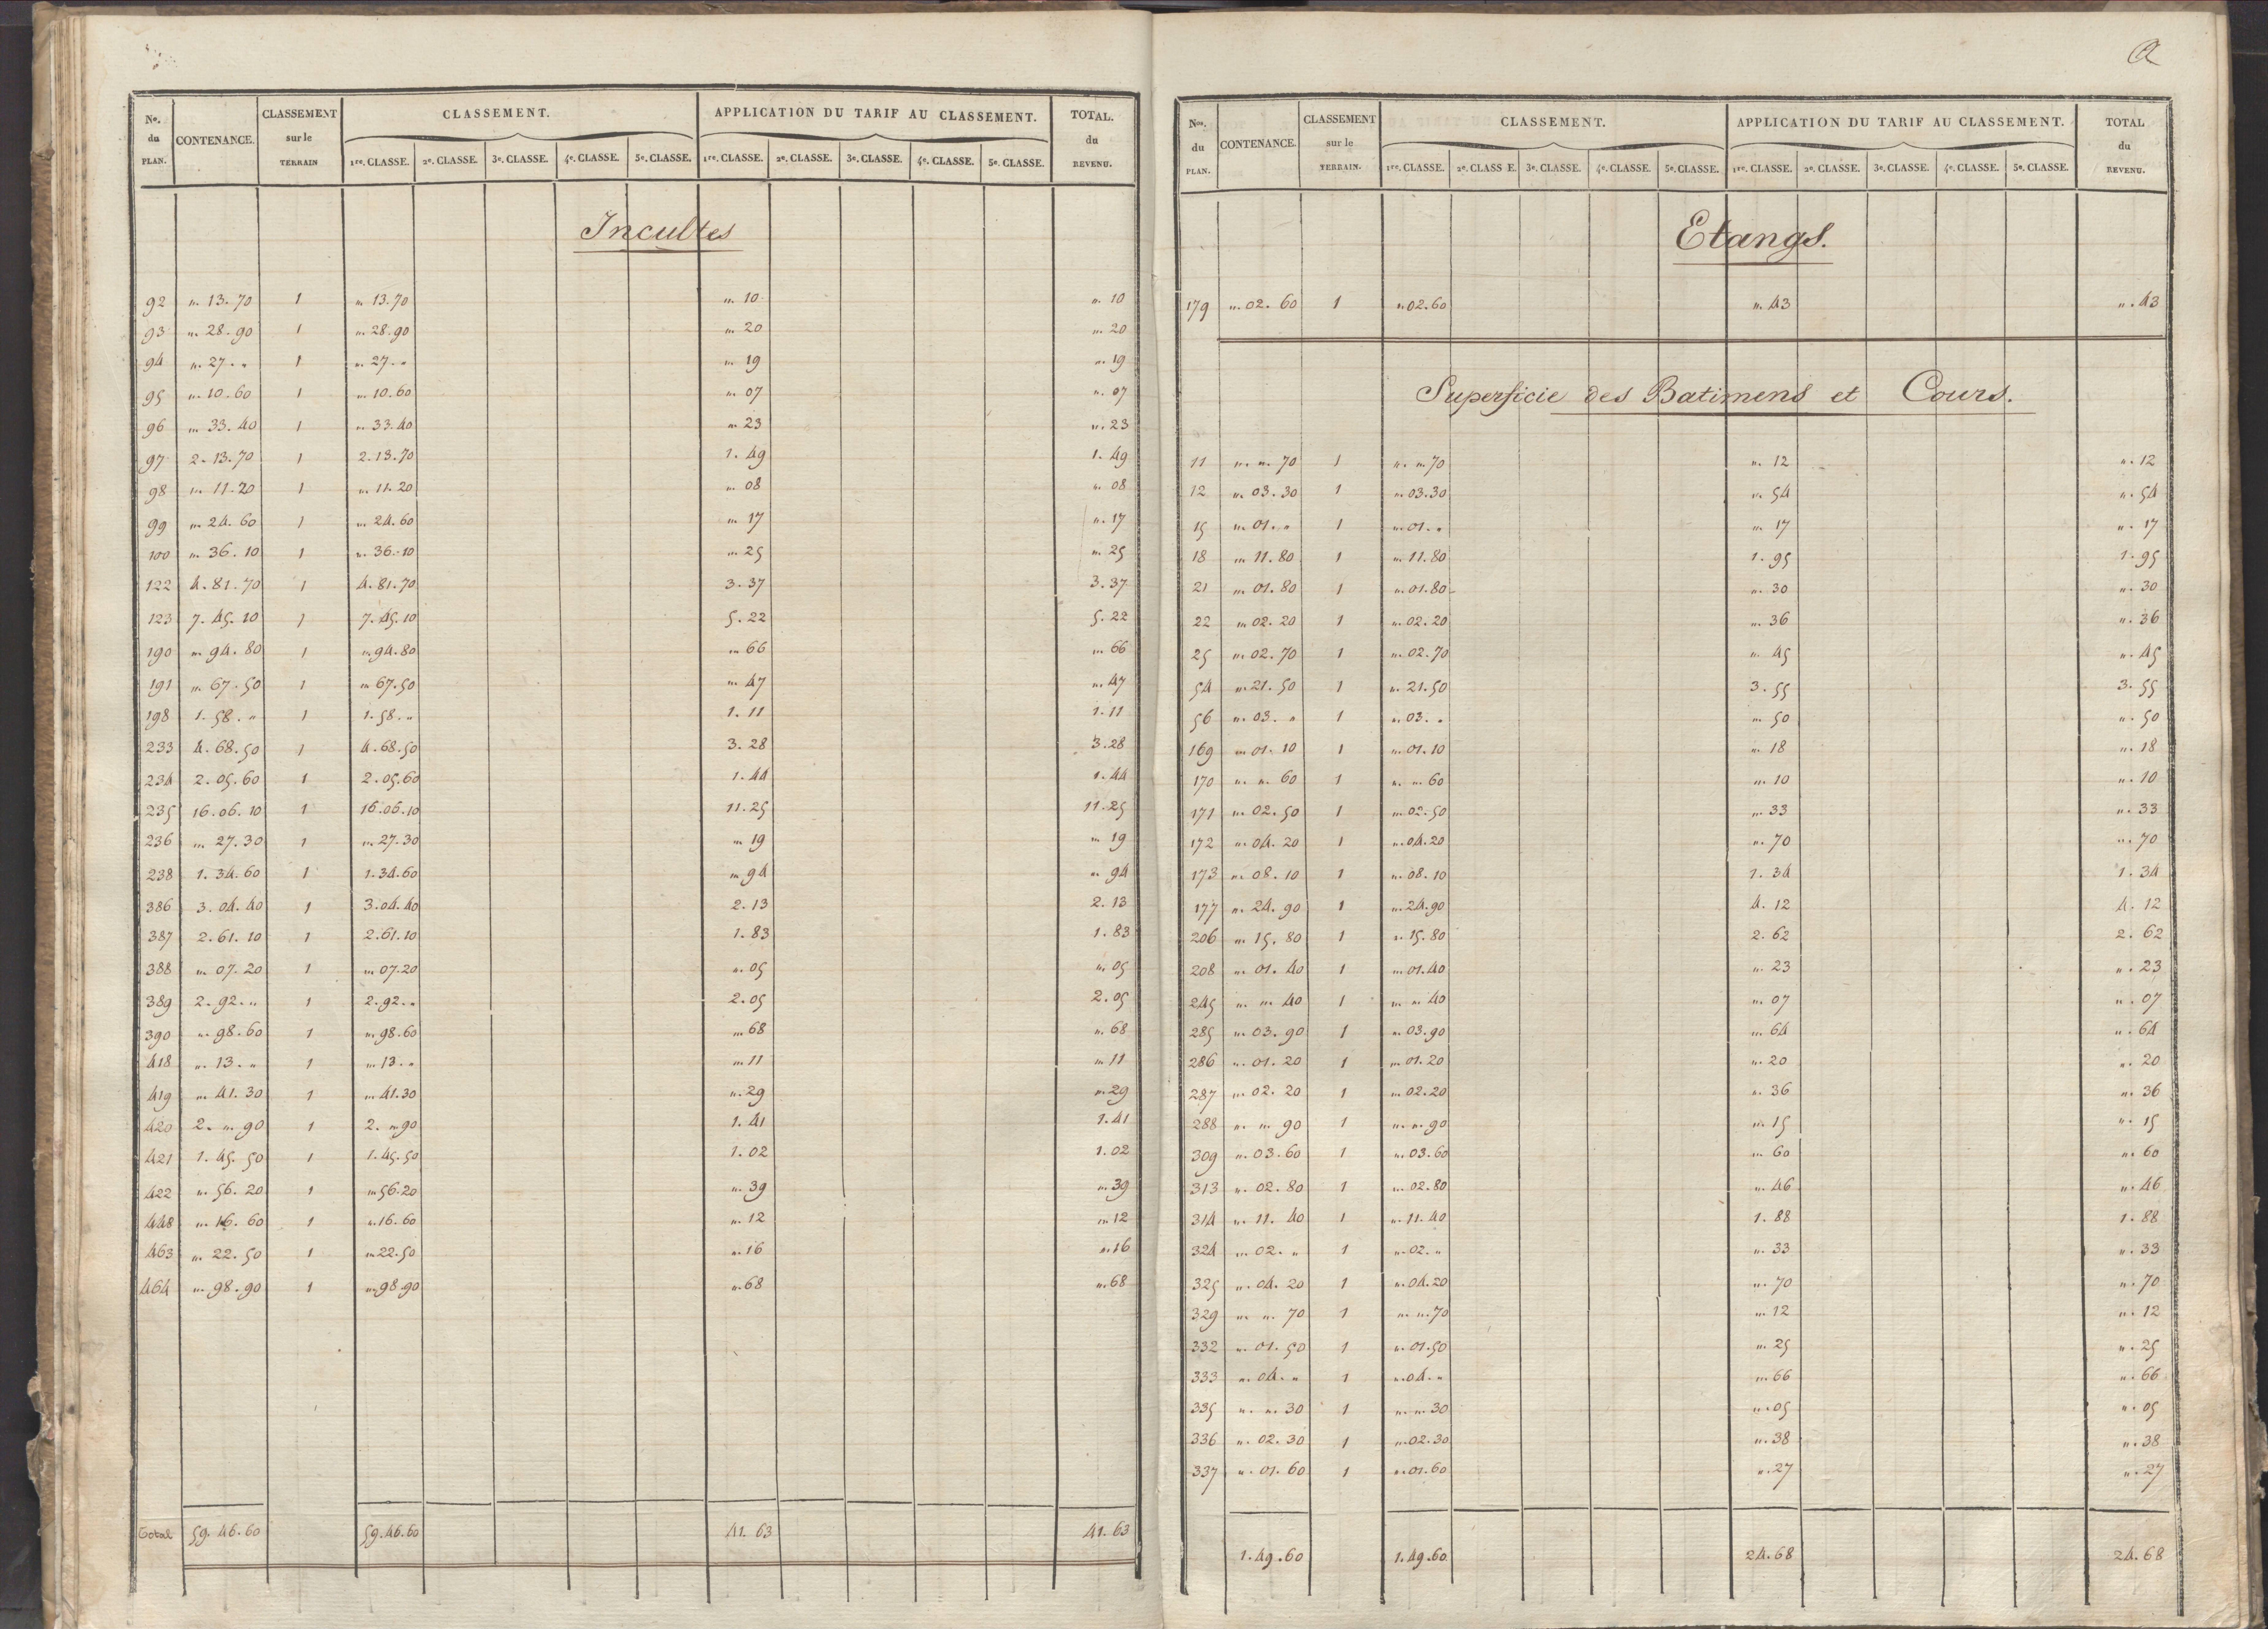 No. du PLAN. CONTENANCE. CLASSEMENT sur le TERRAIN CLASSEMENT. APPLICATION DU TARIF AU CLASSEMENT. TOTAL. du REVENU.
1re. CLASSE. 2e. CLASSE. 3e. CLASSE. 4e. CLASSE. 5e. CLASSE. 1re. CLASSE. 2e. CLASSE. 3e. CLASSE. 4e. CLASSE. 5e. CLASSE.
Incultes
92 ". 13. 70 1 ". 13. 70 ". 10 ". 10
93 ". 28. 90 1 ". 28. 90 ". 20 ". 20
94 ". 27. " 1 ". 27. " ". 19 ". 19
95 ". 10. 60 1 ". 10. 60 ". 07 ". 07
96 ". 33. 40 1 ". 33. 40 ". 23 ". 23
97 2. 13. 70 1 2. 13. 70 1. 49 1. 49
98 ". 11. 20 1 ". 11. 20 ". 08 ". 08
99 ". 24. 60 1 ". 24. 60 ". 17 ". 17
100 ". 36. 10 1 ". 36. 10 ". 25 ". 25
122 4. 81. 70 1 4. 81. 70 3. 37 3. 37
123 7. 45. 10 1 7. 45. 10 5. 22 5. 22
190 ". 94. 80 1 ". 94. 80 ". 66 ". 66
191 ". 67. 50 1 ". 67. 50 ". 47 ". 47
198 1. 58. " 1 1. 58. " 1. 11 1. 11
233 4. 68. 50 1 4. 68. 50 3. 28 3. 28
234 2. 05. 60 1 2. 05. 60 1. 44 1. 44
235 16. 06. 10 1 16. 06. 10 11. 25 11. 25
236 ". 27. 30 1 ". 27. 30 ". 19 ". 19
238 1. 34. 60 1 1. 34. 60 ". 94 ". 94
386 3. 04. 40 1 3. 04. 40 2. 13 2. 13
387 2. 61. 10 1 2. 61. 10 1. 83 1. 83
388 ". 07. 20 1 ". 07. 20 ". 05 ". 05
389 2. 92. " 1 2. 92. " 2. 05 2. 05
390 ". 98. 60 1 ". 98. 60 ". 68 ". 68
418 ". 13. " 1 ". 13. " ". 11 ". 11
419 ". 41. 30 1 ". 41. 30 ". 29 ". 29
420 2. ". 90 1 2. ". 90 1. 41 1. 41
421 1. 45. 50 1 1. 45. 50 1. 02 1. 02
422 ". 56. 20 1 ". 56. 20 ". 39 ". 39
448 ". 16. 60 1 ". 16. 60 ". 12 ". 12
463 ". 22. 50 1 ". 22. 50 ". 16 ". 16
464 ". 98. 90 1 ". 98. 90 ". 68 ". 68
Total 59. 46. 60 59. 46. 60 41. 63 41. 63
Nos. du PLAN. CONTENANCE. CLASSEMENT sur le TERRAIN. CLASSEMENT. APPLICATION DU TARIF AU CLASSEMENT. TOTAL du REVENU.
1re. CLASSE. 2e. CLASS E. 3e. CLASSE. 4e. CLASSE. 5e. CLASSE. 1re. CLASSE. 2e. CLASSE. 3e. CLASSE. 4e. CLASSE. 5e. CLASSE.
Etangs.
179 ". 02. 60 1 ". 02. 60 ". 43 ". 43
Superficie des Batimens et Cours.
11 ". ". 70 1 ". ". 70 ". 12 ". 12
12 ". 03. 30 1 ". 03. 30 ". 54 ". 54
15 ". 01. " 1 ". 01. " ". 17 ". 17
18 ". 11. 80 1 ". 11. 80 1. 95 1. 95
21 ". 01. 80 1 ". 01. 80 ". 30 ". 30
22 ". 02. 20 1 ". 02. 20 ". 36 ". 36
25 ". 02. 70 1 ". 02. 70 ". 45 ". 45
54 ". 21. 50 1 ". 21. 50 3. 55 3. 55
56 ". 03. " 1 ". 03. " ". 50 ". 50
169 ". 01. 10 1 ". 01. 10 ". 18 ". 18
170 ". ". 60 1 ". ". 60 ". 10 ". 10
171 ". 02. 50 1 ". 02. 50 ". 33 ". 33
172 ". 04. 20 1 ". 04. 20 ". 70 ". 70
173 ". 08. 10 1 ". 08. 10 1. 34 1. 34
177 ". 24. 90 1 ". 24. 90 4. 12 4. 12
206 ". 15. 80 1 ". 15. 80 2. 62 2. 62
208 ". 01. 40 1 ". 01. 40 ". 23 ". 23
245 ". ". 40 1 ". ". 40 ". 07 ". 07
285 ". 03. 90 1 ". 03. 90 ". 64 ". 64
286 ". 01. 20 1 ". 01. 20 ". 20 ". 20
287 ". 02. 20 1 ". 02. 20 ". 36 ". 36
288 ". ". 90 1 ". ". 90 ". 15 ". 15
309 ". 03. 60 1 ". 03. 60 ". 60 ". 60
313 ". 02. 80 1 ". 02. 80 ". 46 ". 46
314 ". 11. 40 1 ". 11. 40 1. 88 1. 88
324 ". 02. " 1 ". 02. " ". 33 ". 33
325 ". 04. 20 1 ". 04. 20 ". 70 ". 70
329 ". ". 70 1 ". ". 70 ". 12 ". 12
332 ". 01. 50 1 ". 01. 50 ". 25 ". 25
333 ". 04. " 1 ". 04. " ". 66 ". 66
335 ". ". 30 1 ". ". 30 ". 05 ". 05
336 ". 02. 30 1 ". 02. 30 ". 38 ". 38
337 ". 01. 60 1 ". 01. 60 ". 27 ". 27
1. 49. 60 1. 49. 60 24. 68 24. 68